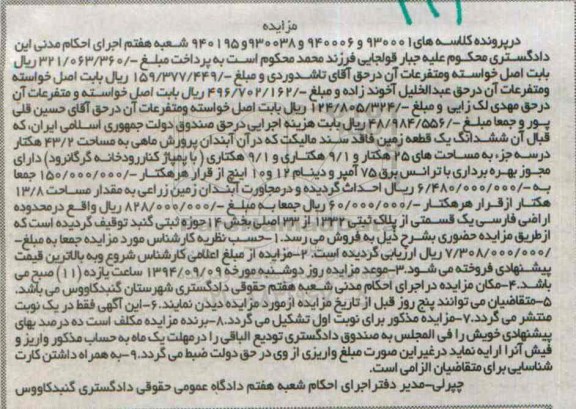 مزایده
درپرونده کلاسه های ۹۳۰۰۰۱ و ۹۴۰۰۰۶ و ۹۳۰۰۳۸ و ۹۴۰۱۹۵ شعبه هفتم اجرای احکام مدنی این
دادگستری محکوم علیه جبار قولجایی فرزند محمد محکوم است به پرداخت مبلغ -/۳۲۱/۰۶۳/۳۶۰ ریال
بابت اصل خواسته ومتفرعات آن درحق آقای تاشدوردی و مبلغ -/۱۵۹/۳۷۷/۴۴۹ ریال بابت اصل خواسته
ومتفرعات آن درحق عبدالخلیل آخوند زاده و مبلغ -/۴۹۶/۷۰۲/۱۶۲ ریال بابت اصل خواسته و متفرعات آن
درحق مهدی لک زایی و مبلغ -/۱۲۴/۸۰۵/۳۲۴ ریال بابت اصل خواسته ومتفرعات آن درحق آقای حسین قلی
پور و جمعا مبلغ -/۴۸/۹۸۴/۵۵۶ ریال بابت هزینه اجرایی درحق صندوق دولت جمهوری اسلامی ایران، که
قبال آن ششدانگ یک قطعه زمین فاقد سند مالیکت که درآن آبندان پرورش ماهی به مساحت ۴۳/۲ هکتار
درسه جزء به مساحت های ۲۵ هکتار و ۹/۱ هکتاری و ۹/۱ هکتاری ( با پمپاژ کناررودخانه گرگانرود) دارای
مجوز بهره برداری با ترانس برق ۷۵ آمپر و دینام ۱۲ و ۱۰ اینچ از قرار هرهکتار -/۱۵۰/۰۰۰/۰۰۰ جمعا
به -/۶/۴۸۰/۰۰۰/۰۰۰ ریال احداث گردیده و درمجاورت آبندان زمین زراعی به مقدار مساحت ۱۳/۸
هکتار ازقرار هرهکتار -/۶۰/۰۰۰/۰۰۰ ریال جمعا به مبلغ -/۸۲۸/۰۰۰/۰۰۰ ریال واقع درمحدوده
اراضی فارسی یک قسمتی از پلاک ثبتی ۱۳۳۲ از ۳۳ اصلی بخش ۱۴ حوزه ثبتی گنبد توقیف گردیده است که
از طریق مزایده حضوری بشرح ذیل به فروش می رسد.۱-حسب نظریه کارشناس مورد مزایده جمعا به مبلغ-
/۷/۳۰۸/۰۰۰/۰۰۰ ریال ارزیابی گردیده است.۲-مزایده از مبلغ اعلامی کارشناس شروع وبه بالاترین قیمت
پیشنهادی فروخته می شود.۳-موعد مزایده روز دوشنبه مورخه ۱۳۹۴/۰۹/۰۹ ساعت یازده (۱۱) صبح می
باشد.۴-مکان مزایده در اجرای احکام مدنی شعبه هفتم حقوقی دادگستری شهرستان گنبدکاووس می باشد.
۵-متقاضیان می توانند پنج روز قبل از تاریخ مزایده از مورد مزایده دیدن نمایند.۶-این آگهی فقط در یک نوبت
منتشر می گردد.۷-مزایده مذکور برای نوبت اول تشکیل می گردد.۸-برنده مزایده مکلف است ده درصد بهای
پیشنهادی خویش را فی المجلس به صندوق دادگستری تودیع الباقی را درمهلت یک ماه به حساب مذکور واریز و
فیش آنرا ارایه نماید درغیراین صورت مبلغ واریزی از وی در حق دولت ضبط می گردد.۹-به همراه داشتن کارت
شناسایی برای متقاضیان الزامی است.
چپرلی-مدیر دفتراجرای احکام شعبه هفتم دادگاه عمومی حقوقی دادگستری گنبدکاووس